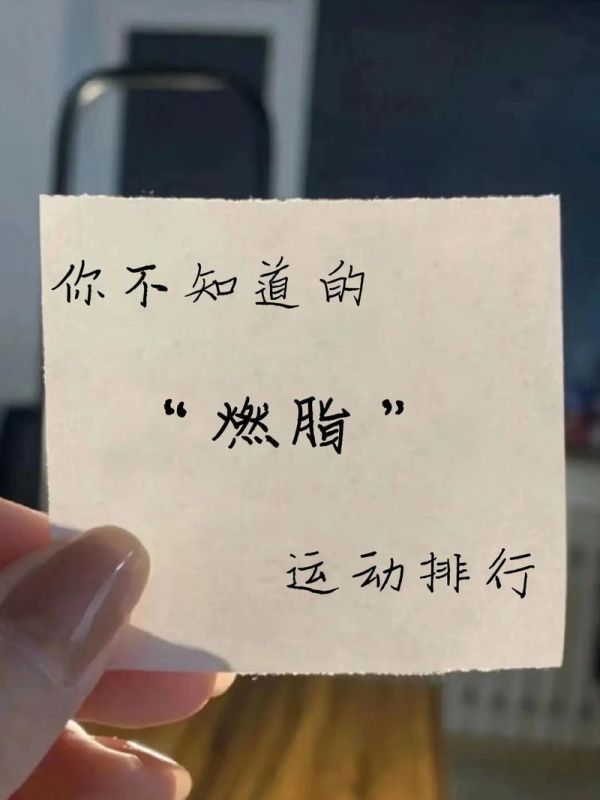 你不知道的
“燃脂”
运动排行